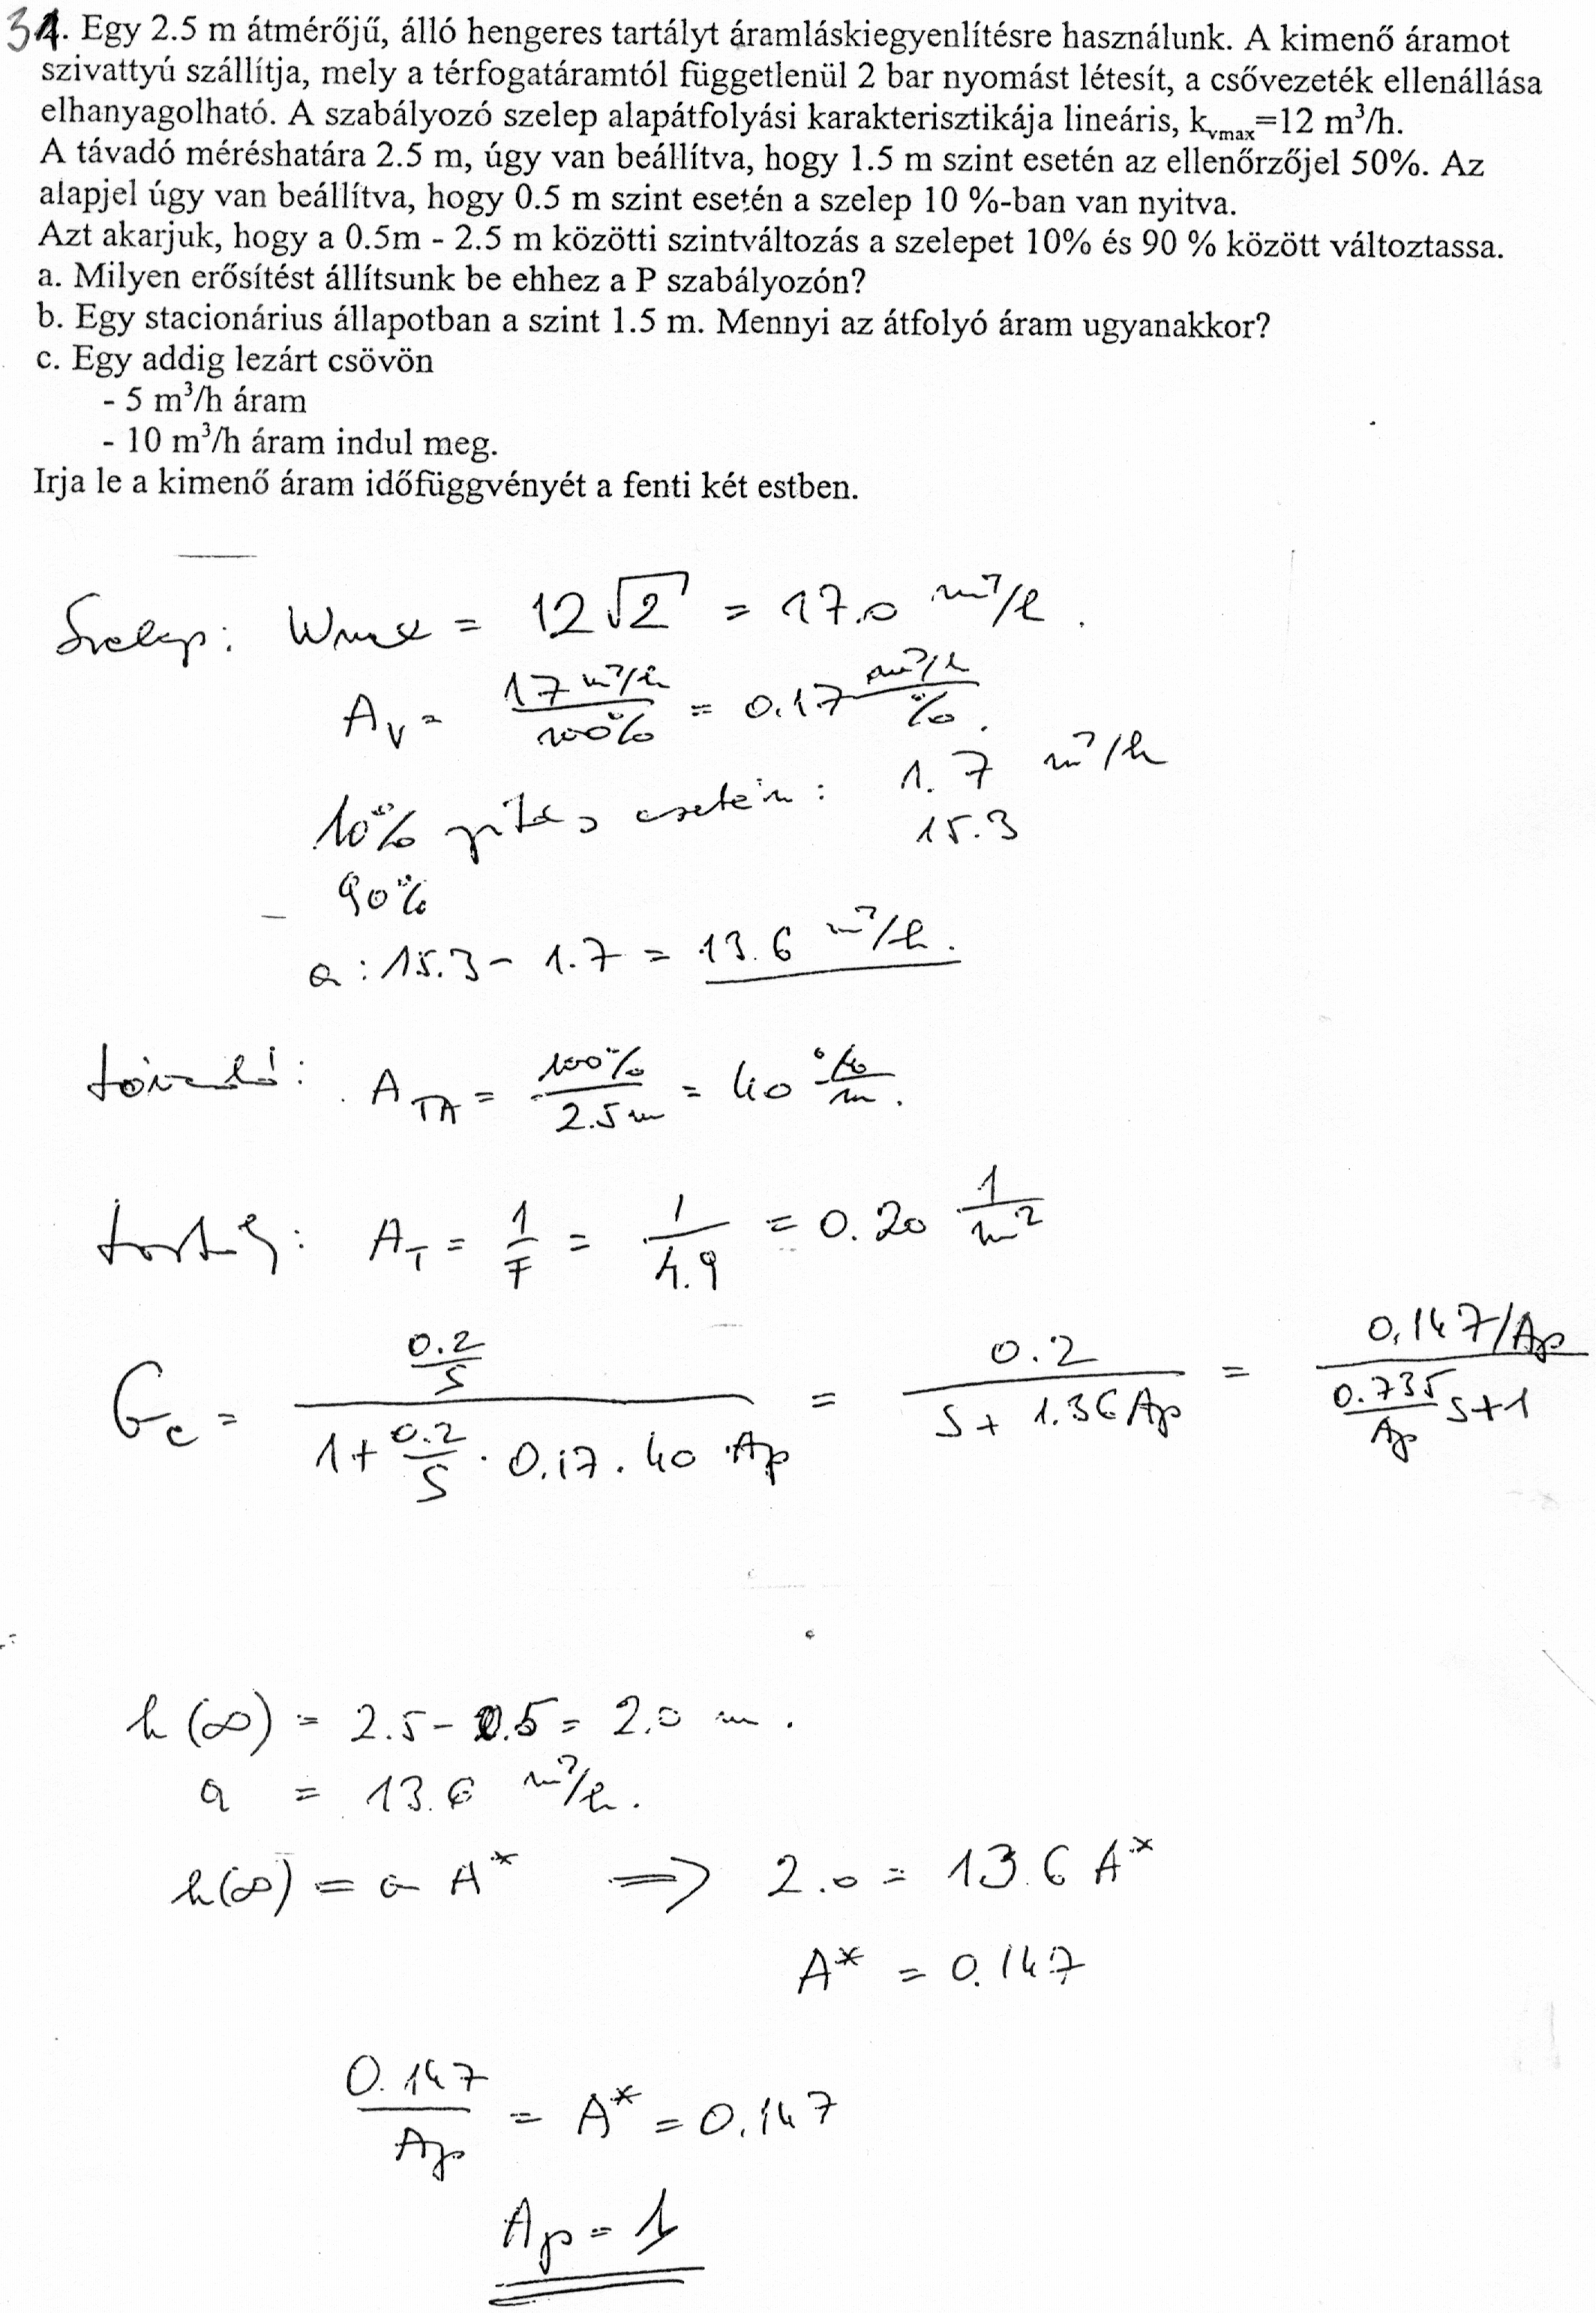 31. Egy 2.5 m átmérőjű, álló hengeres tartályt áramláskiegyenlítésre használunk. A kimenő áramot
szivattyú szállítja, mely a térfogatáramtól függetlenül 2 bar nyomást létesít, a csővezeték ellenállása
elhanyagolható. A szabályozó szelep alapátfolyási karakterisztikája lineáris, kvmax=12 m³/h.
A távadó méréshatára 2.5 m, úgy van beállítva, hogy 1.5 m szint esetén az ellenőrzőjel 50%. Az
alapjel úgy van beállítva, hogy 0.5 m szint esetén a szelep 10 %-ban van nyitva.
Azt akarjuk, hogy a 0.5m - 2.5 m közötti szintváltozás a szelepet 10% és 90 % között változtassa.
a. Milyen erősítést állítsunk be ehhez a P szabályozón?
b. Egy stacionárius állapotban a szint 1.5 m. Mennyi az átfolyó áram ugyanakkor?
c. Egy addig lezárt csövön
- 5 m³/h áram
- 10 m³/h áram indul meg.
Irja le a kimenő áram időfüggvényét a fenti két estben.
Szelep: Wmax = 12√2 = 17.0 m³/h.
Av = 17 m³/h / 100% = 0.17 m³/h / %.
10% nyitás esetén: 1.7 m³/h
90% 15.3
a: 15.3 - 1.7 = 13.6 m³/h.
távadó: ATA = 100% / 2.5 m = 40 % / m.
tartály: AT = 1/F = 1/4.9 = 0.20 1/m²
Gc = (0.2/s) / (1 + 0.2/s · 0.17 · 40 · Ap) = 0.2 / (s + 1.36 Ap) = (0,147/Ap) / (0.735/Ap s + 1)
h(∞) = 2.5 - 0.5 = 2.0 m.
a = 13.6 m³/h.
h(∞) = a A* ⟹ 2.0 = 13.6 A*
A* = 0.147
0.147 / Ap = A* = 0.147
Ap = 1